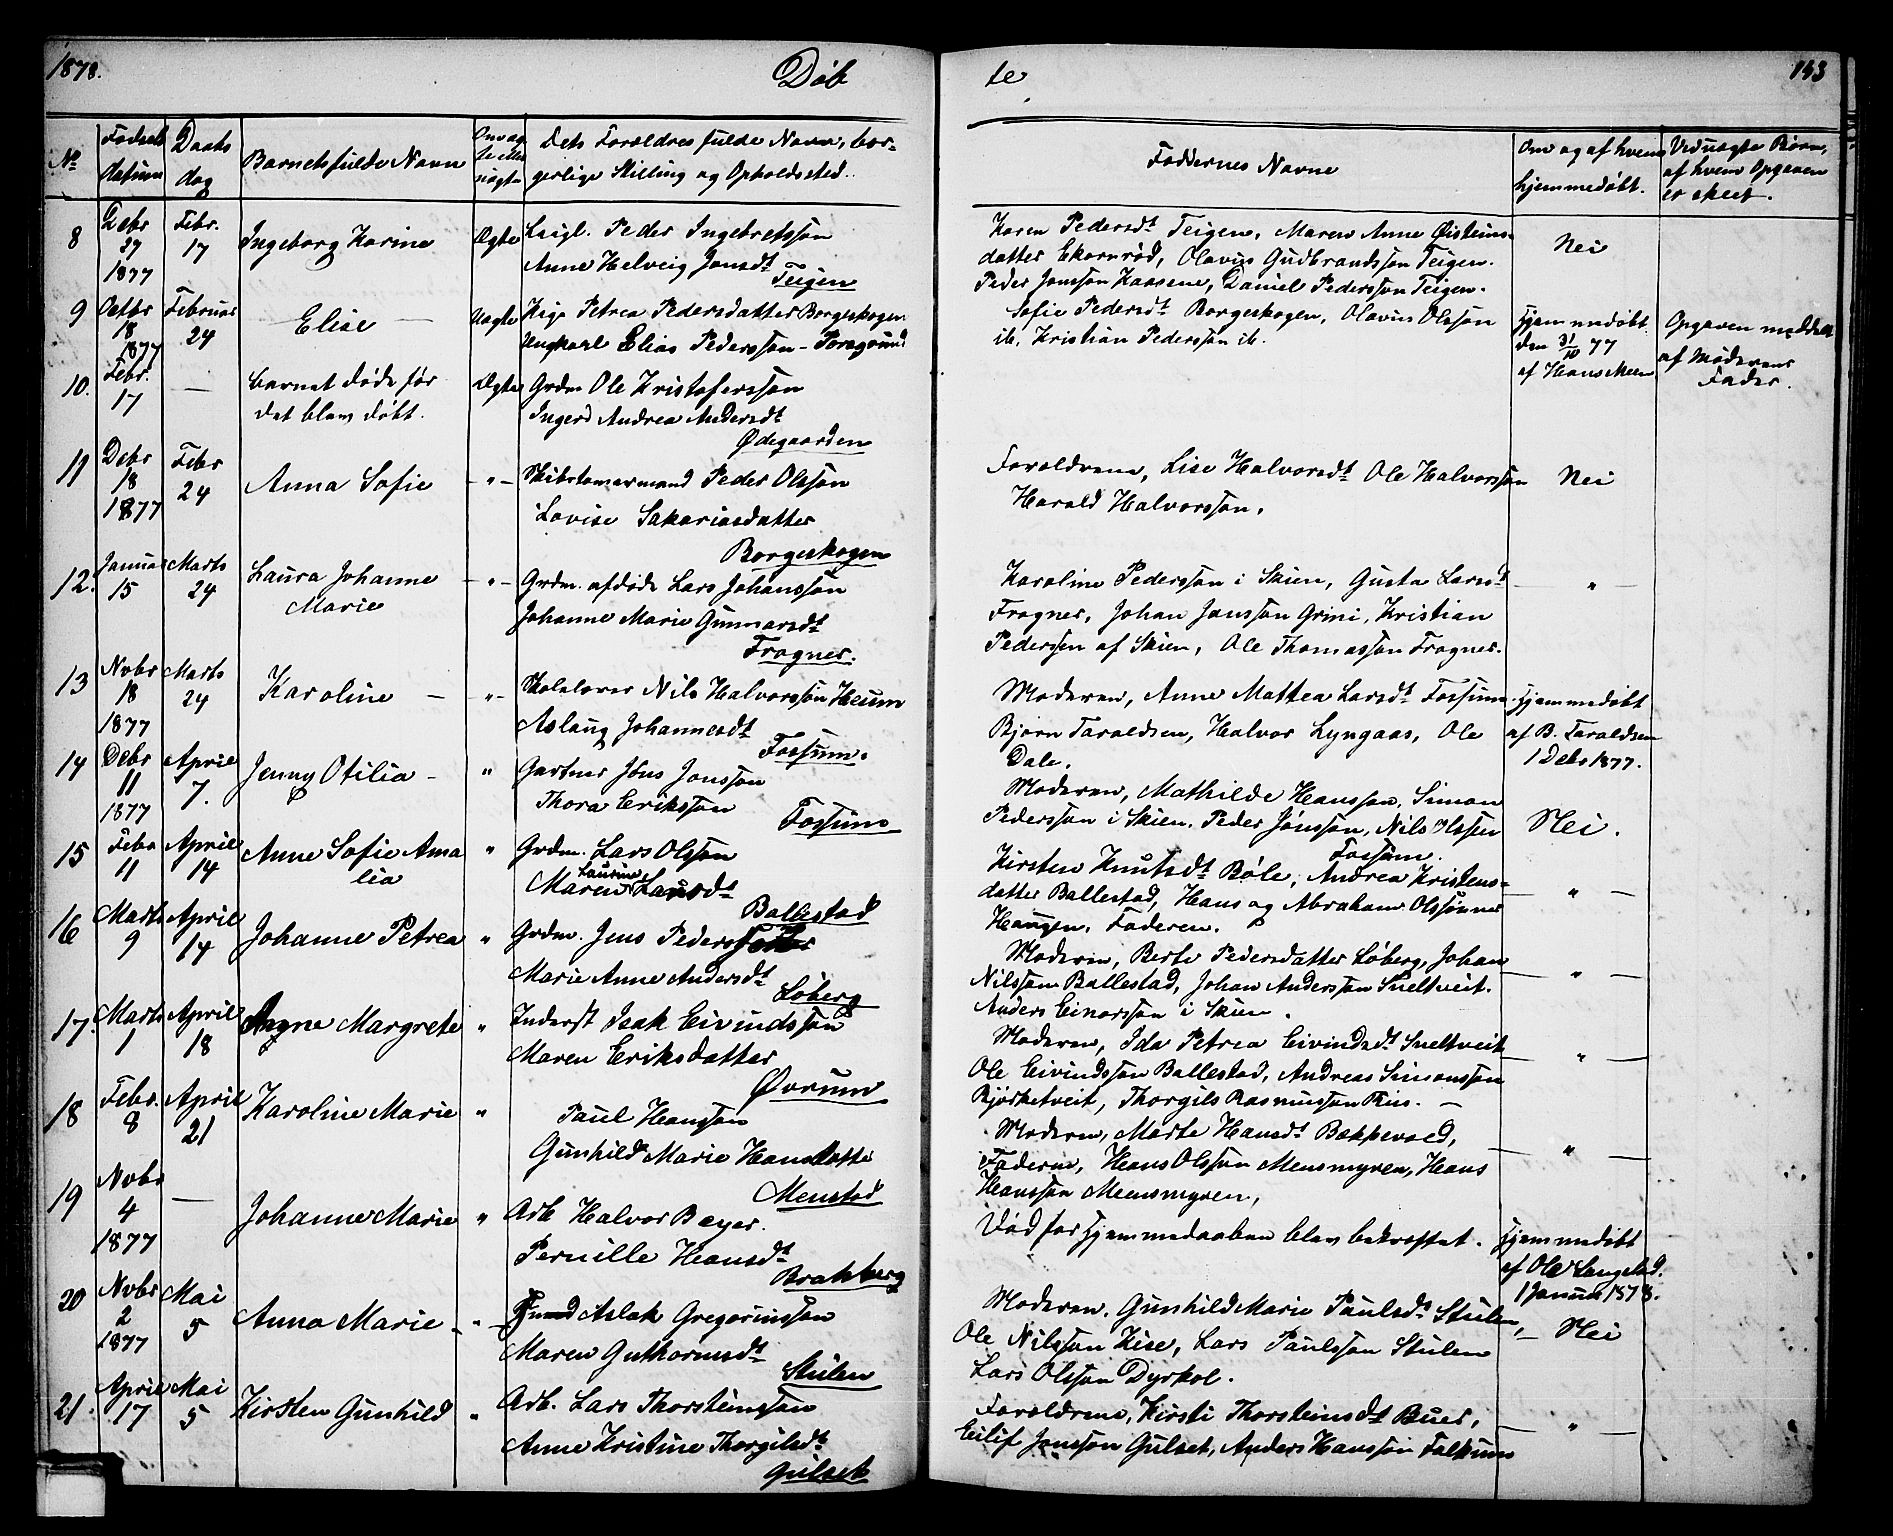 1878.
Døb
te
143
No
Fødsels
datum
Daabs
dag
Barnets fulde Navn
Om æg
te eller
uægte
Dets Forældres fulde Navn, bor-
gerlige Stilling og Opholdssted.
Faddernes Navne
Om og af hvem
hjemmedøbt.
Ved uægte Børn,
af hvem Opgaven
er skeet.
8
Debr
27
1877
Febr.
17
Ingeborg Karine
Ægte
Leigl. Peder Ingebretssøn
Anne Helveig Jonsdt
Teigen
Karen Pedersdt Teigen, Maren Anne Øisteins-
datter Ekornrød, Olavus Gudbrandssøn Teigen.
Peder Jonssøn Kaasene, Daniel Pederssøn Teigen.
Nei
9
Octbr
18
1877
Februar
24
Elise
Uægte
Pige Petrea Pedersdatter Borgeskogen
Ungkarl Elias Pederssøn - Porsgrund
Sofie Pedersdt Borgeskogen, Olavus Olssøn
ib. Kristian Pederssøn ib.
Hjemmedøbt
den 31/10 77
af Hans Moen
Opgaven meddelt
af Moderens
Fader.
10.
Febr.
17
—
barnet døde før
det blev døbt.
Ægte
Grdm Ole Kristoferssøn
Ingerd Andrea Andersdt
Ødegaarden
11
Debr
18
1877
Febr
24
Anna Sofie
- " -
Skibstømermand Peder Olssøn
Lovise Sakariasdatter
Borgeskogen
Forældrene, Lise Halvorsdt Ole Halvorssøn
Harald Halvorssøn.
Nei
12.
Januar
15
Marts
24
Laura Johanne
Marie
- " -
Grdm. afdøde Lars Johanssøn
Johanne Marie Gunnarsdt
Frogner.
Karoline Pederssøn i Skien, Gusta Larsdt
Frogner, Johan Janssøn Grini, Kristian
Pederssen af Skien, Ole Thomassøn Frogner.
"
13
Novbr
18
1877
Marts
24
Karoline —
- " -
Skolelærer Nils Halvorssøn Heum
Aslaug Johannesdt
Fossum.
Moderen, Anne Mattea Larsdt Fossum
Bjørn Taraldsen, Halvor Lyngaas, Ole
Dale.
Hjemmedøbt
af B. Taraldsen
1 Debr 1877.
14
Debr
11
1877
April
7.
Jenny Otilia -
"
Gartner Jøns Jonssøn
Thora Erikssøn
Fossum
Moderen, Mathilde Hanssøn, Simon
Pederssøn i Skien. Peder Jønssøn, Nils Olssen
Fossum.
Nei.
15
Febr
11
April
14
Anne Sofie Ama
lia
"
Grdm. Lars Olssøn
Laurine
Maren Larsdt
Ballestad
Kirsten Knutsdt Bøle, Andrea Kristens-
datter Ballestad, Hans og Abraham Olssønner
Haugen. Faderen.
"
16
Marts
9
April
14
Johanne Petrea
"
Grdm. Jens Pederssøn
Marie Anne Andersdt
Løberg
Moderen, Berte Pedersdatter Løberg, Johan
Nilssøn Ballestad, Johan Anderssøn Sneltveit.
Anders Einarssøn i Skien.
"
17.
Marts
1
April
18
Agne Margrete
"
Inderst Isak Eivindssøn
Maren Eriksdatter
Øvrum
Moderen, Ida Petrea Eivindsdt Sneltveit
Ole Eivindssøn Ballestad, Andreas Simonssøn
Bjørketveit, Thorgils Rasmussøn Riis. —
"
18
Febr.
8
April
21
Karoline Marie
"
Paul Hanssøn
Gunhild Marie Hansdatter
Menstad
Moderen, Marte Hansdt Bækkevold,
Faderen, Hans Olssøn Mensmyren, Hans
Hanssøn Mensmyren,
"
19
Novbr
4
1877
—
Johanne Marie
"
Arb Halvor Bayer.
Pernille Hansdt
Brakberg
Død før Hjemmedaaben blev bekræftet.
Hjemmedøbt
af Ole Langstad.
1 Januar 1878.
20
Novbr
2
1877
Mai
5
Anna Marie
- " -
Aslak Gregoriussøn
Maren Guthormsdt
Stulen
Moderen. Gunhild Marie Paulsdt Stulen,
Ole Nilssøn Kise, Lars Paulssøn Stulen
Lars Olssøn Dyrkol.
Nei
21.
April
17
Mai
5
Kirsten Gunhild
"
Arb. Lars Thorsteinssøn
Anne Kristine Thorgilsdt
Gulset
Forældrene, Kirsti Thorsteinsdt Buer,
Eilif Jonssøn Gulset, Anders Hanssøn Falkum
"